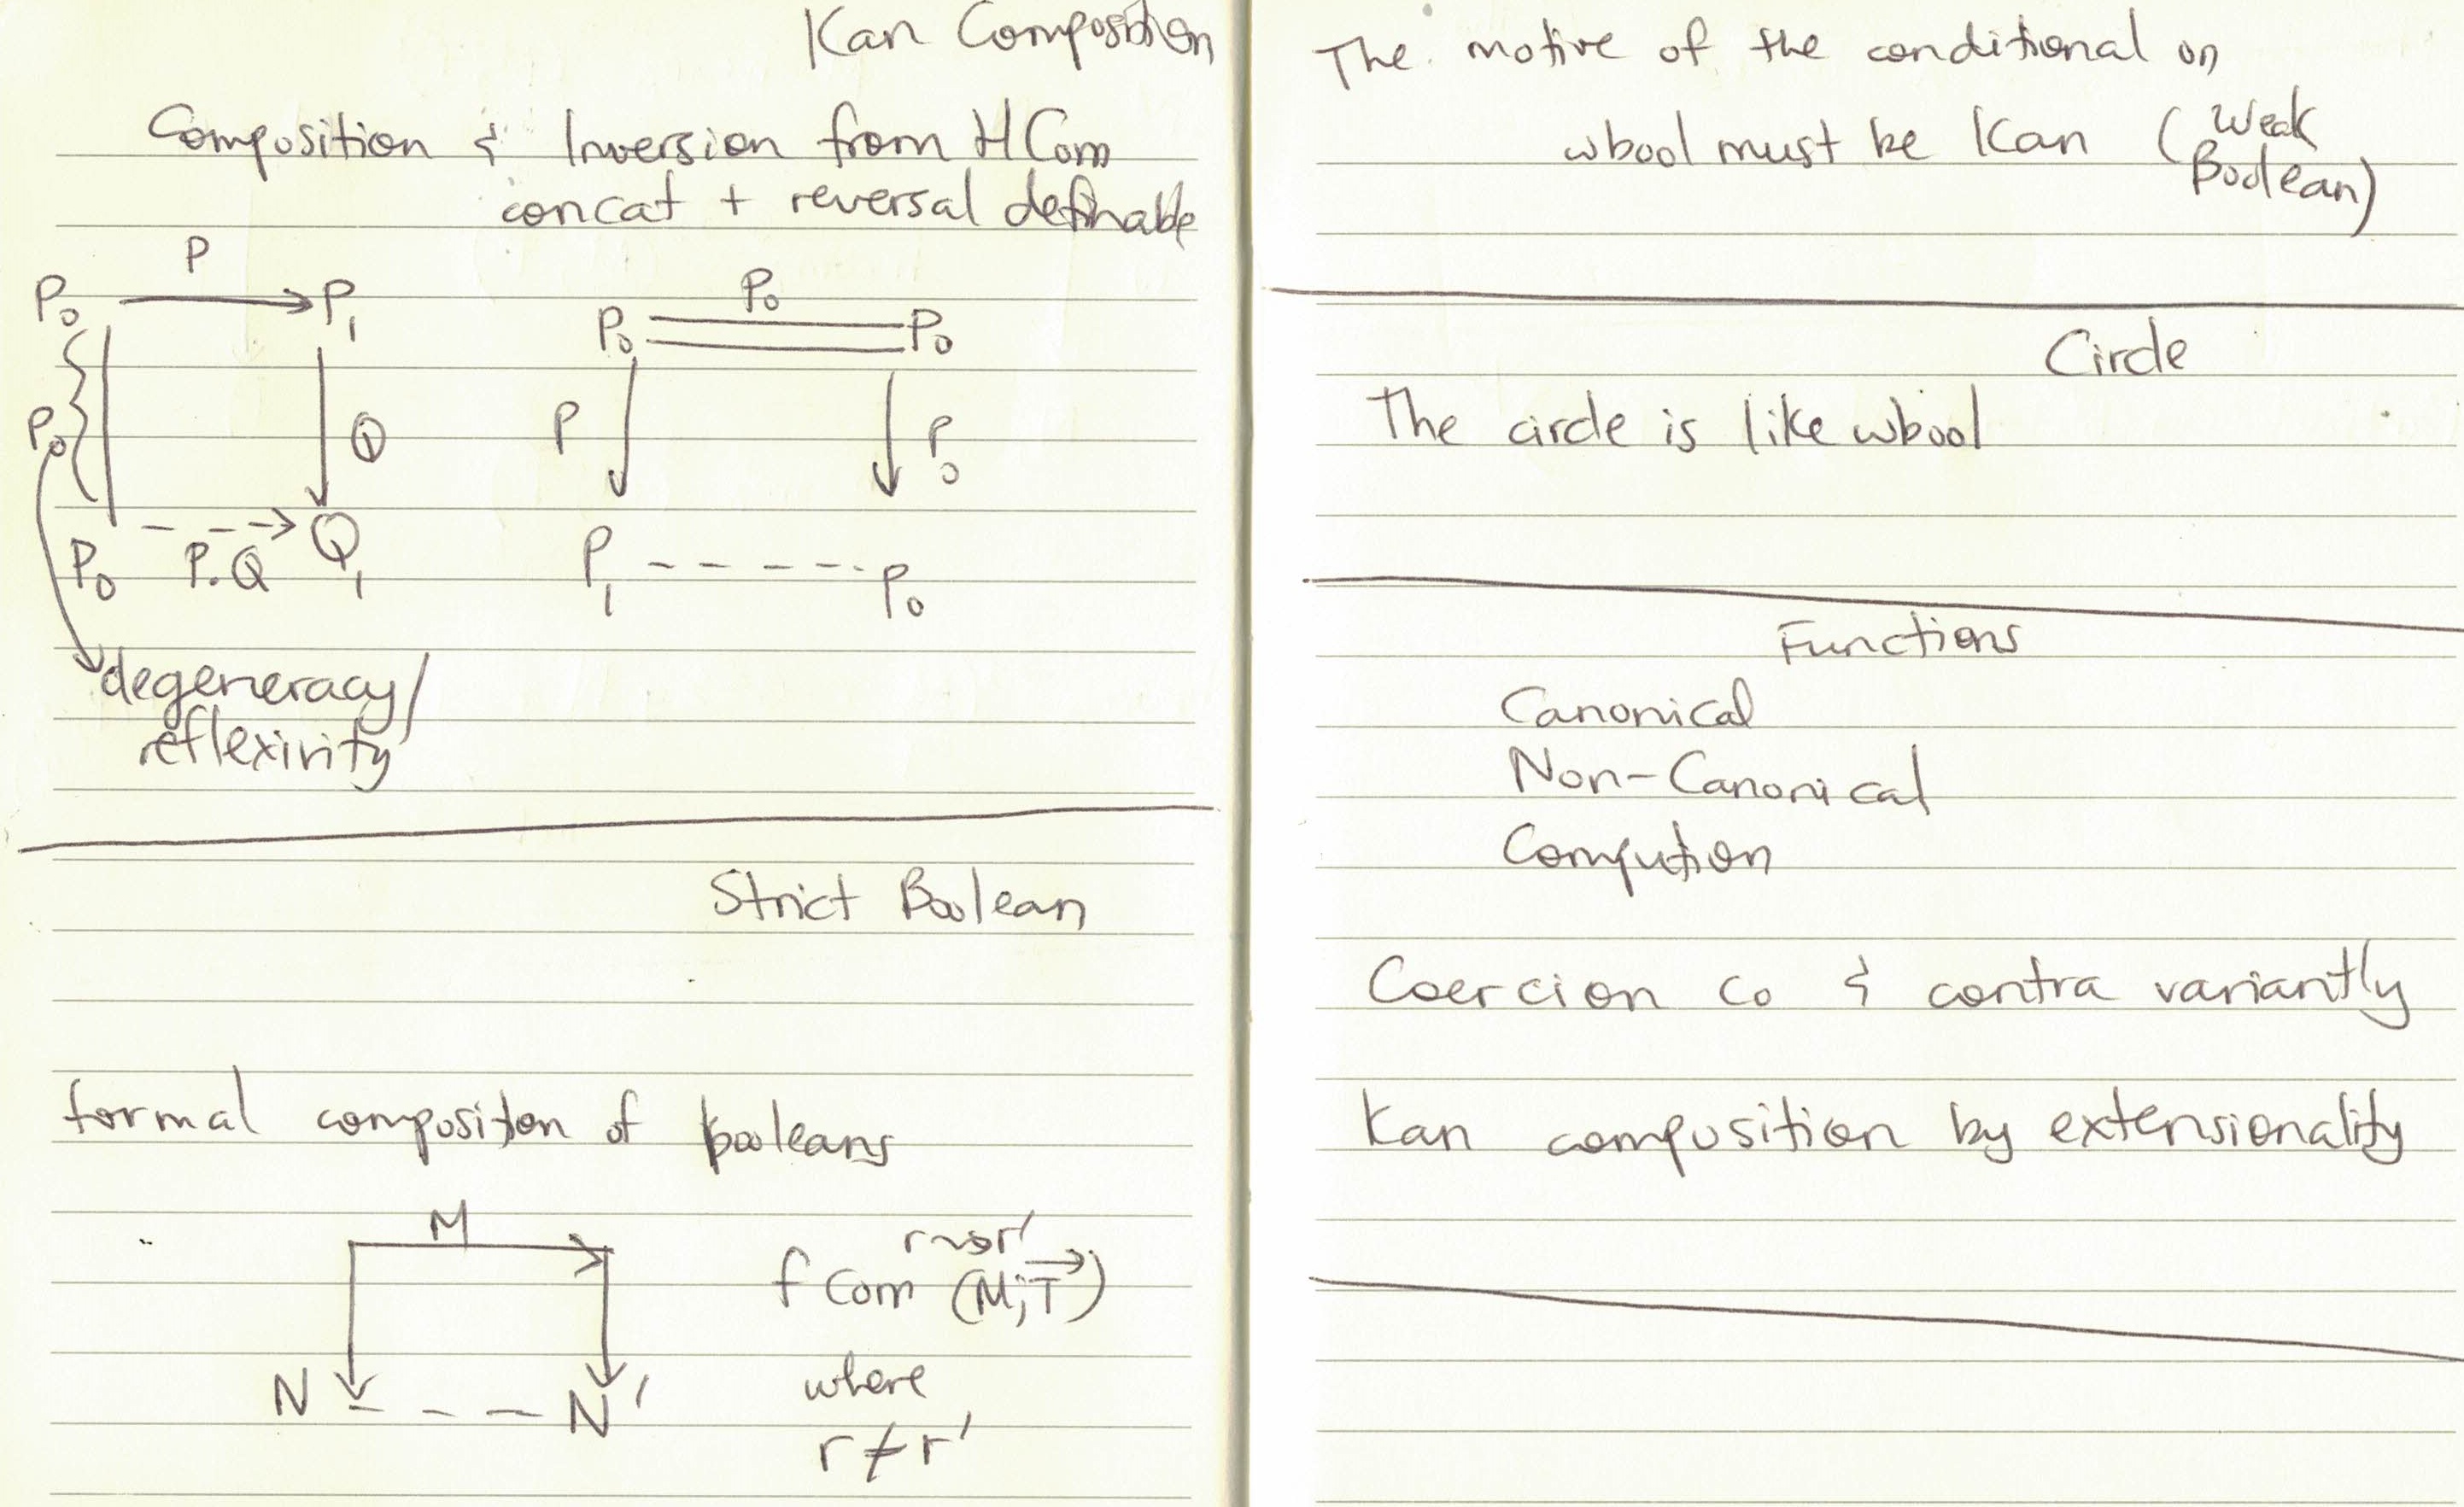 Kan Composition
Composition & Inversion from HCom
concat + reversal definable
P
P₀ P₁
P₀ Q
P₀ P.Q Q₁
P₀
P₀ P₀
P P₀
P₁ P₀
degeneracy/
reflexivity
Strict Boolean
formal compositon of booleans
M
N N'
r⇝r'
fcom (M; T⃗)
where
r ≠ r'
The motive of the conditional on
wbool must be Kan (Weak
Boolean)
Circle
The circle is like wbool
Functions
Canonical
Non-Canonical
Compution
Coercion co & contra variantly
Kan composition by extensionality